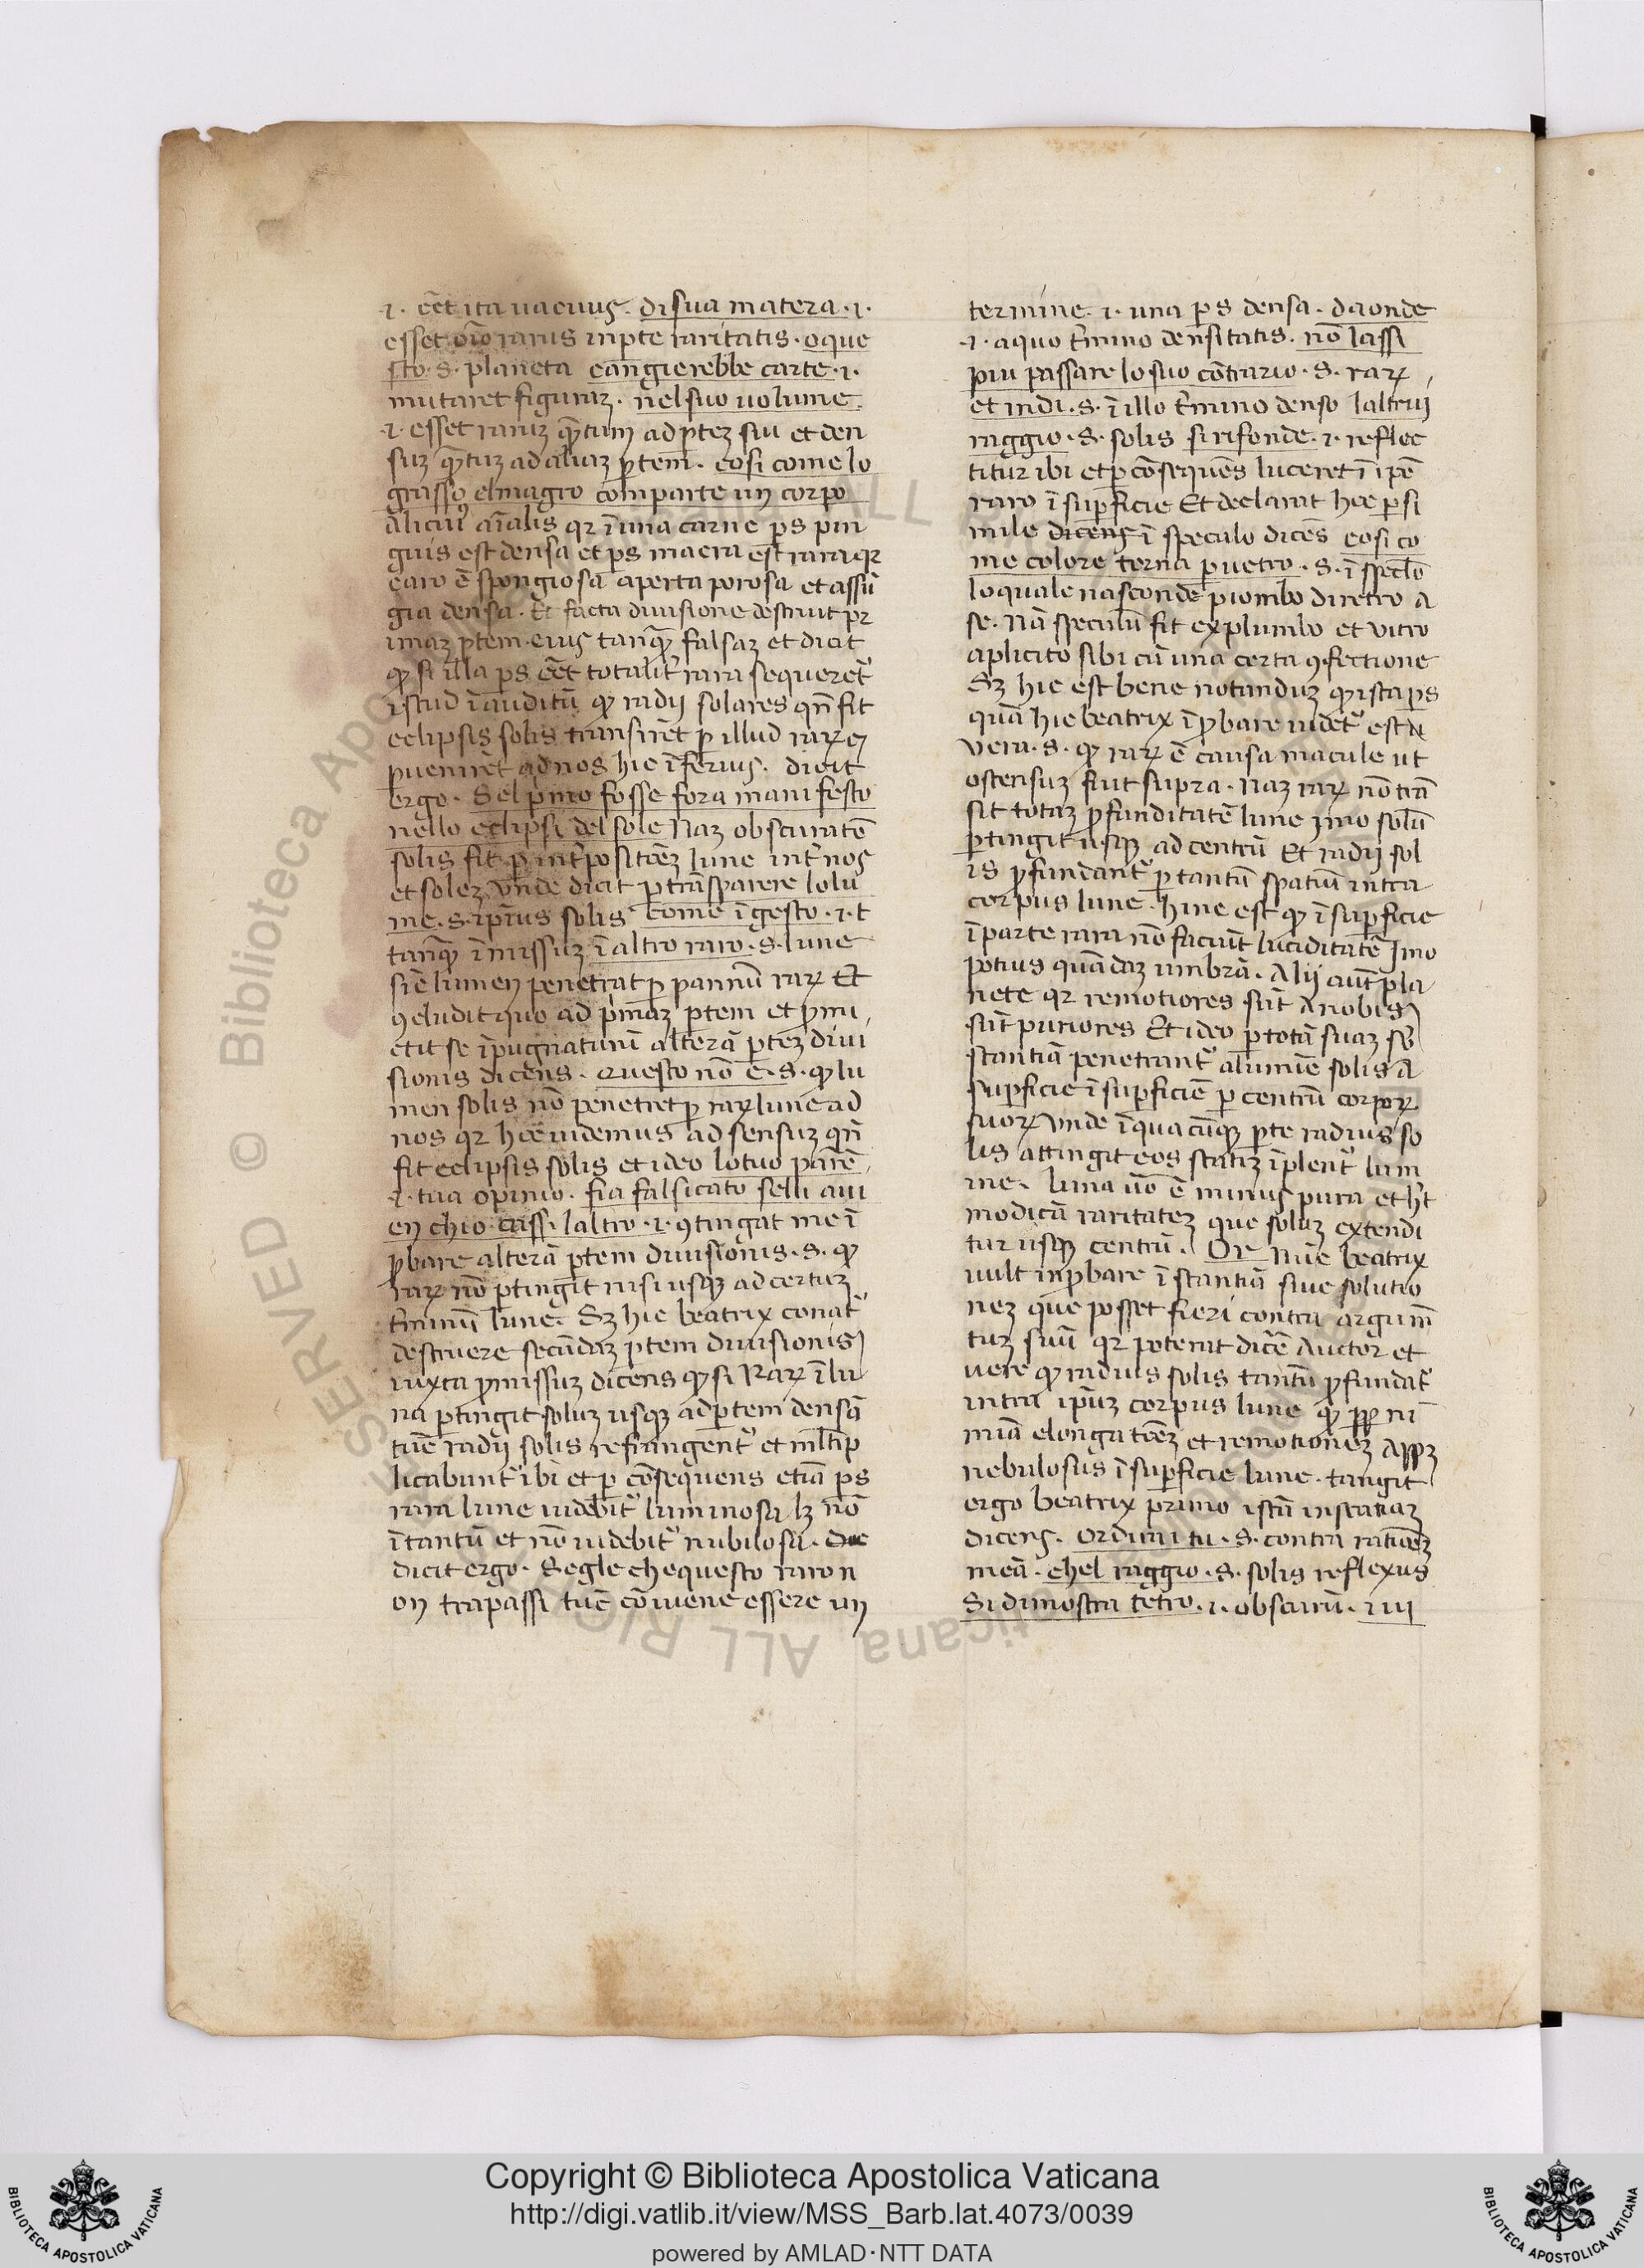 .ı. eēt ita uacuus. di sua matera .ı.
esset oīo rarus in pte raritatis. o que
sto .S. planeta cangierebbe carte .ı.
mutaret figuraz. nel suo uolume.
.ı. esset raruz qȝtum ad ptez siu et den
suz qȝtuz ad aliaz ptem. cosi come lo
grasso elmagro comparte un corpo
alicuiꝰ aīalis qr ī una carne ps pin
guis est densa et ps macra est rara qr
caro ē spongiosa aperta porosa et assū
gia densa. Et facta diuisione destruit pr
imaz ptem eius tanqȝ falsaz et dicit
qȝ si illa ps eēt totalit᷑ rara sequeret᷑
istud ī auditū qȝ radij solares qn̄ fit
eclipsis solis transiret p illud raꝝ en
pueniret ad nos hic īferius. dicit
ergo. Sel pmo fosse fora manifesto
nello eclipsi del sole Naz obscuratē
solis fit p int᷑positēez lune int᷑ nos
et solez vnde dicit p transparere lo lu
me .S. ipīus solis come īgesto .ı. t
tanqȝ īmissuz ī altro raro .S. lune
siē lumen penetrat p pannū raꝝ Et
ꝯcludit quo ad pmaz ptem et pmi
ctit se īpugnaturū alterā ptez diui
sionis dicens. Questo nō e .S. qȝ lu
men solis nō penetret p raꝝ lune ad
nos qr hoc uidemus ad sensuz qn̄
fit eclipsis solis et ideo lo tuo parē
.ı. tua opinio. fia falsicato selli aui
en chio cassi laltro .ı. ꝯtingat me ī
pbare alterā ptem diuisionis .S. qȝ
raꝝ nō ptingit nisi usqȝ ad certuz
t᷑minū lune. Sȝ hic beatrix conat᷑
destruere secūdaz ptem diuisionis
iuxta pmissuz dicens qȝ si Raꝝ ī lu
na ptingit soluz usqȝ ad ptem densā
tūc radij solis refrangent᷑ et mltip
licabunt᷑ ibi et p cōsequens etiā ps
rara lune uidebit᷑ luminosa lȝ nō
ītantū et nō uidebit᷑ nubilosa. Doc
dicit ergo. Segle che questo raro n
on trapassi tuc cōuiene essere un
termine .ı. una ps densa. da onde
.ı. aquo t᷑mino densitatis. nō lassi
piu passare lo suo cōtrario .S. raꝝ
et indi .S. ī illo t᷑mino denso laltrui
raggio .S. solis si rifonde .ı. reflec
titur ibi et p cōsequēs luceret ī ipē
raro ī suꝑficie Et declarat hoc p si
mile dicens ī speculo dicēs cosi co
me colore torna p uetro .S. ī speclo
lo quale nasconde piombo diretro a
se. Nā speculū fit ex plumbo et vitro
aplicito sibi cū una certa ꝯfectione
Sȝ hic est bene notanduz qȝ ista ps
quā hic beatrix īpbare uidet᷑ est
vera .S. qȝ raꝝ ē causa macule ut
ostensuz fuit supra. Naz raꝝ nō trā
sit totaz pfunditatē lune ymo solū
ptingit usqȝ ad centrū Et radij sol
is pfundant᷑ p tantū spatiū intra
corpus lune. hinc est qȝ ī suꝑficie
ī parte rara nō faciūt luciditatē Imo
potius quādaz umbrā. Alij aūt pla
nete qr remotiores sūt a nobis
sūt puriores Et ideo p totā suaz sb
stantiā penetrant᷑ a lumīe solis a
suꝑficie ī suꝑficiē p centrū corpoꝝ
suoꝝ Vnde ī quacūqȝ pte radius so
lis attingit eos statiz īplent᷑ lum
ine. luna uō ē minus pura et ht
modicā raritatez que soluz extendi
tur usqȝ centrū. Or nūc beatrix
uult inpbare īstantiā siue solutio
nez que posset fieri contra argum̄
tuz suū qr poterat dicē Auctor et
uere qȝ radius solis tantū pfundat᷑
intra ipūz corpus lune qȝ ppr ni
miā elongatēez et remotionez appȝ
nebulosus ī suꝑficie lune. tangit
ergo beatrix primo istā instatiaz
dicens. Or dirai tu .S. contra rationez
meā. chel raggio .S. solis reflexus
Si dimostra tetro .ı. obscurū. iui
Copyright © Biblioteca Apostolica Vaticana
http://digi.vatlib.it/view/MSS_Barb.lat.4073/0039
powered by AMLAD·NTT DATA